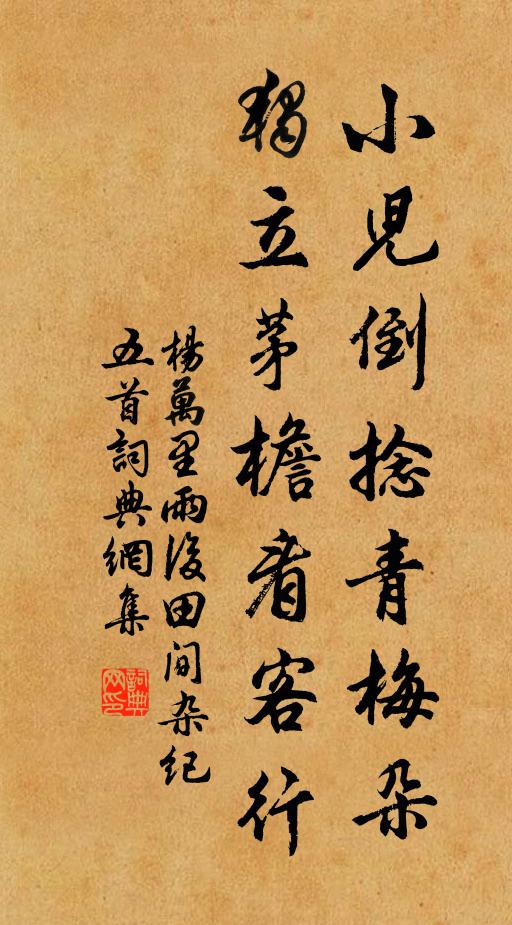 小児倒捻青梅朵
獨立茅檐看客行
楊萬里雨後田間杂紀
五首詞典網集
詞典
网印